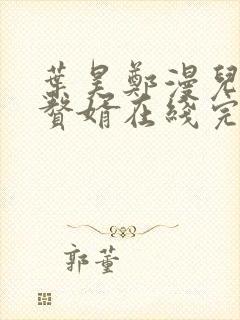 葉昊鄭漫兒
贅婿在綫完
郭董